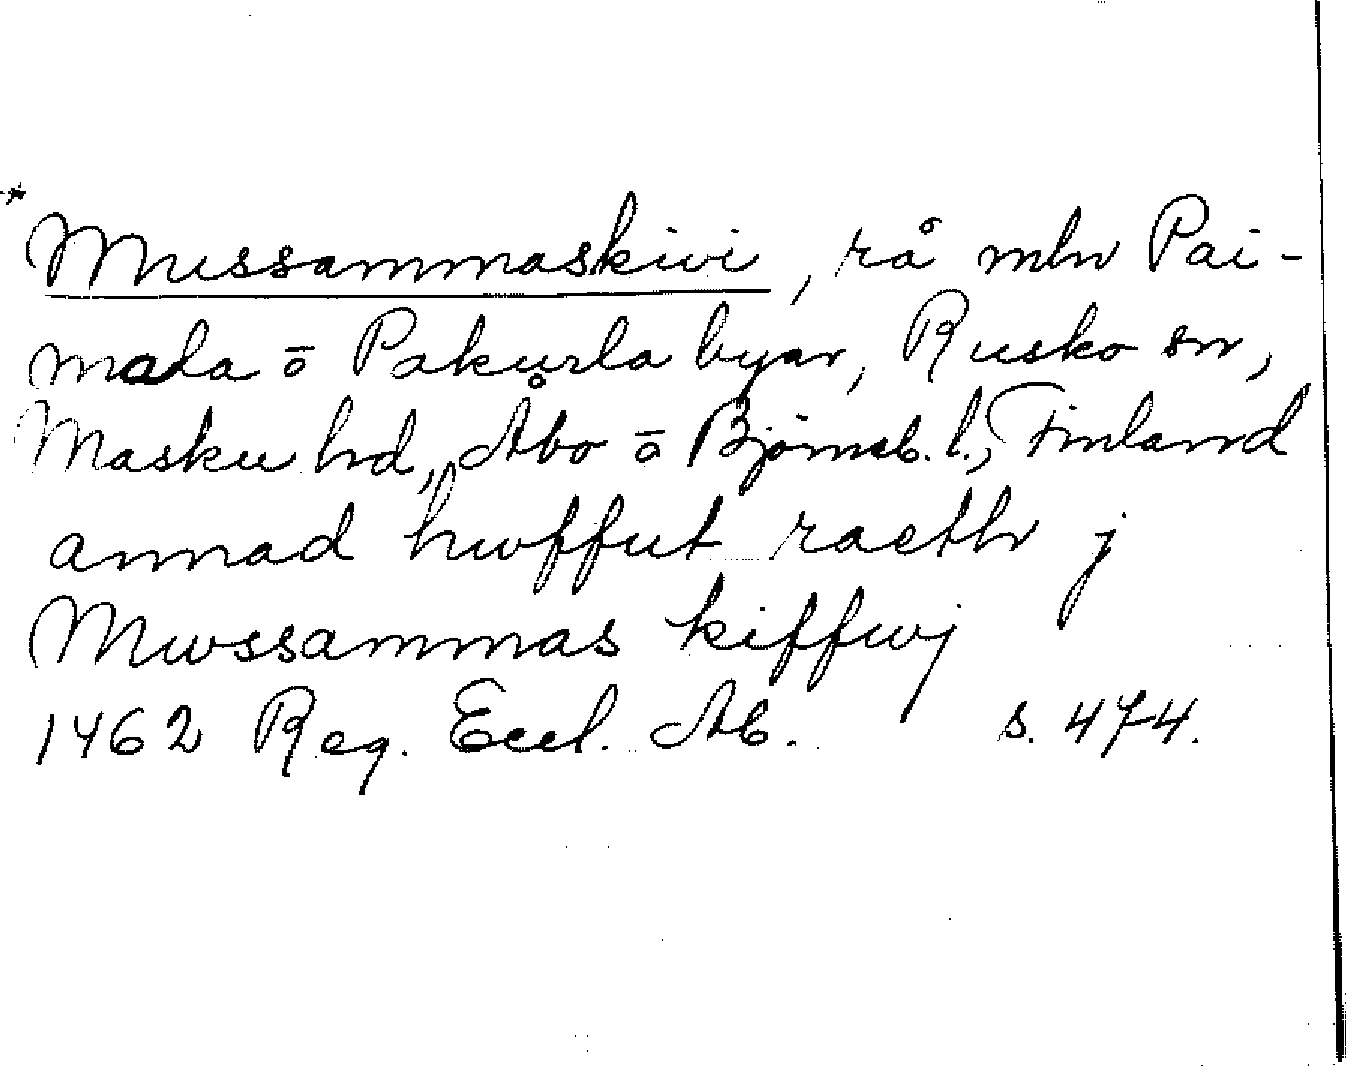 *Mussammaskivi, rå mln Pai-
mala ō Pakurla byar, Rusko sn,
Masku hd, Åbo ō Björneb. l., Finland
annad hwffut raeth j
Mwssammas kiffwj
1462 Reg. Eccl. Ab. s. 474.